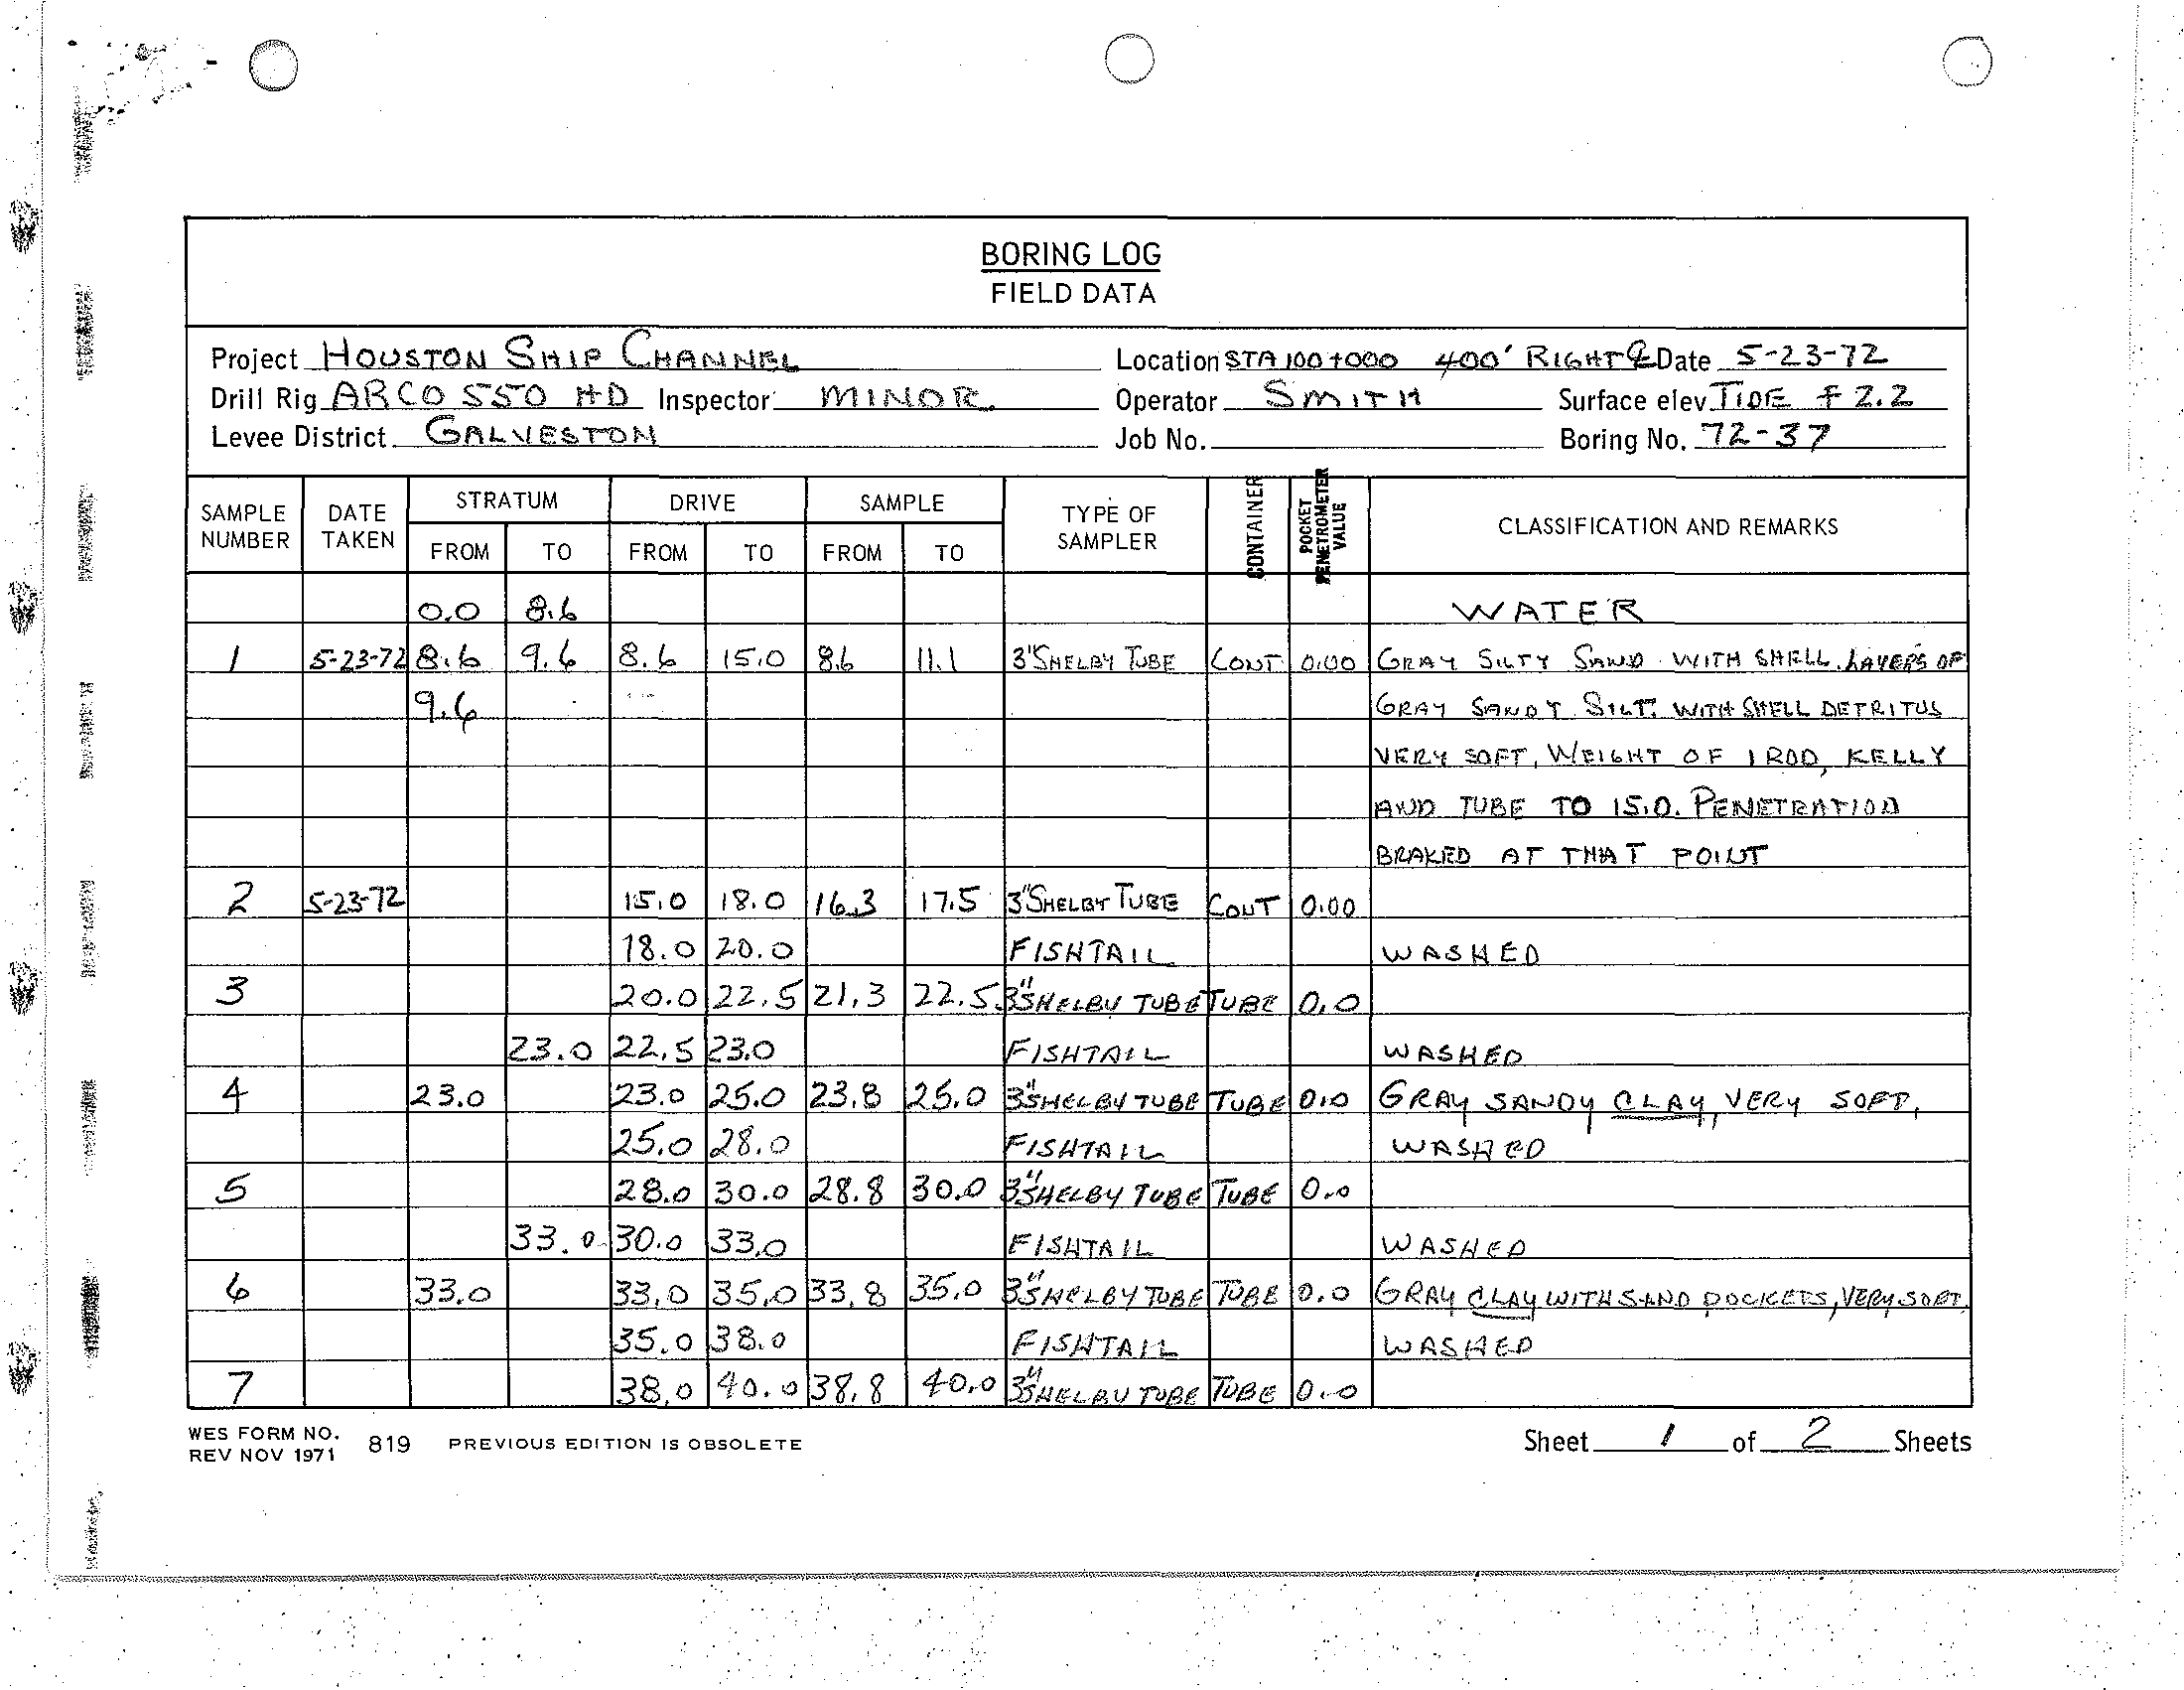 BORING LOG
FIELD DATA
Project HOUSTON SHIP CHANNEL Location STA 100+000 400' RIGHT ℄ Date 5-23-72
Drill Rig ARCO 550 HD Inspector MINOR. Operator SMITH Surface elev. TIDE + 2.2
Levee District GALVESTON Job No. Boring No. 72-37
SAMPLE NUMBER DATE TAKEN STRATUM DRIVE SAMPLE TYPE OF SAMPLER CONTAINER POCKET PENETROMETER VALUE CLASSIFICATION AND REMARKS
FROM TO FROM TO FROM TO
0.0 8.6 WATER
1 5-23-72 8.6 9.6 8.6 15.0 8.6 11.1 3" SHELBY TUBE CONT 0.00 GRAY SILTY SAND WITH SHELL. LAYERS OF
9.6 GRAY SANDY SILT. WITH SHELL DETRITUS
VERY SOFT, WEIGHT OF 1 ROD, KELLY
AND TUBE TO 15.0. PENETRATION
BRAKED AT THAT POINT
2 5-23-72 15.0 18.0 16.3 17.5 3" SHELBY TUBE CONT 0.00
18.0 20.0 FISHTAIL WASHED
3 20.0 22.5 21.3 22.5 3" SHELBY TUBE TUBE 0.0
23.0 22.5 23.0 FISHTAIL WASHED
4 23.0 23.0 25.0 23.8 25.0 3" SHELBY TUBE TUBE 0.0 GRAY SANDY CLAY, VERY SOFT,
25.0 28.0 FISHTAIL WASHED
5 28.0 30.0 28.8 30.0 3" SHELBY TUBE TUBE 0.0
33.0 30.0 33.0 FISHTAIL WASHED
6 33.0 33.0 35.0 33.8 35.0 3" SHELBY TUBE TUBE 0.0 GRAY CLAY WITH SAND POCKETS, VERY SOFT.
35.0 38.0 FISHTAIL WASHED
7 38.0 40.0 38.8 40.0 3" SHELBY TUBE TUBE 0.0
WES FORM NO. 819 PREVIOUS EDITION IS OBSOLETE Sheet 1 of 2 Sheets
REV NOV 1971